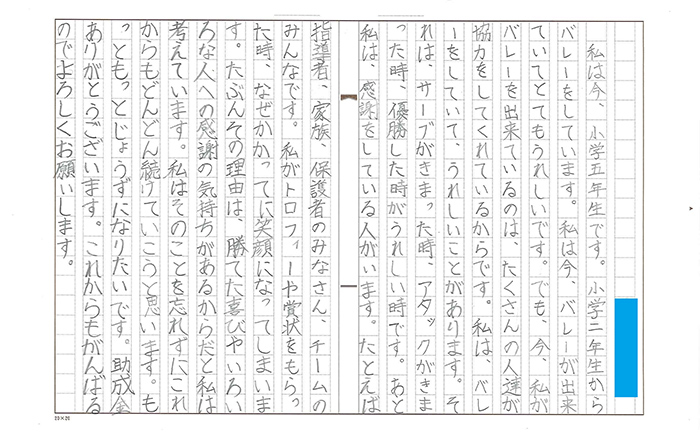 私は今、小学五年生です。小学二年生から
バレーをしています。私は今、バレーが出来
ていてとてもうれしいです。でも、今、私が
バレーを出来ているのは、たくさんの人達が
協力をしてくれているからです。私は、バレ
ーをしていて、うれしいことがあります。そ
れは、サーブがきまった時、アタックがきま
った時、優勝した時がうれしい時です。あと
私は、感謝をしている人がいます。たとえば
指導者、家族、保護者のみなさん、チームの
みんなです。私がトロフィーや賞状をもらっ
た時、なぜかかってに笑顔になってしまいま
す。たぶんその理由は、勝てた喜びやいろい
ろな人への感謝の気持ちがあるからだと私は
考えています。私はそのことを忘れずにこれ
からもどんどん続けていこうと思います。も
っともっとじょうずになりたいです。助成金
ありがとうございます。これからもがんばる
のでよろしくお願いします。
20×20